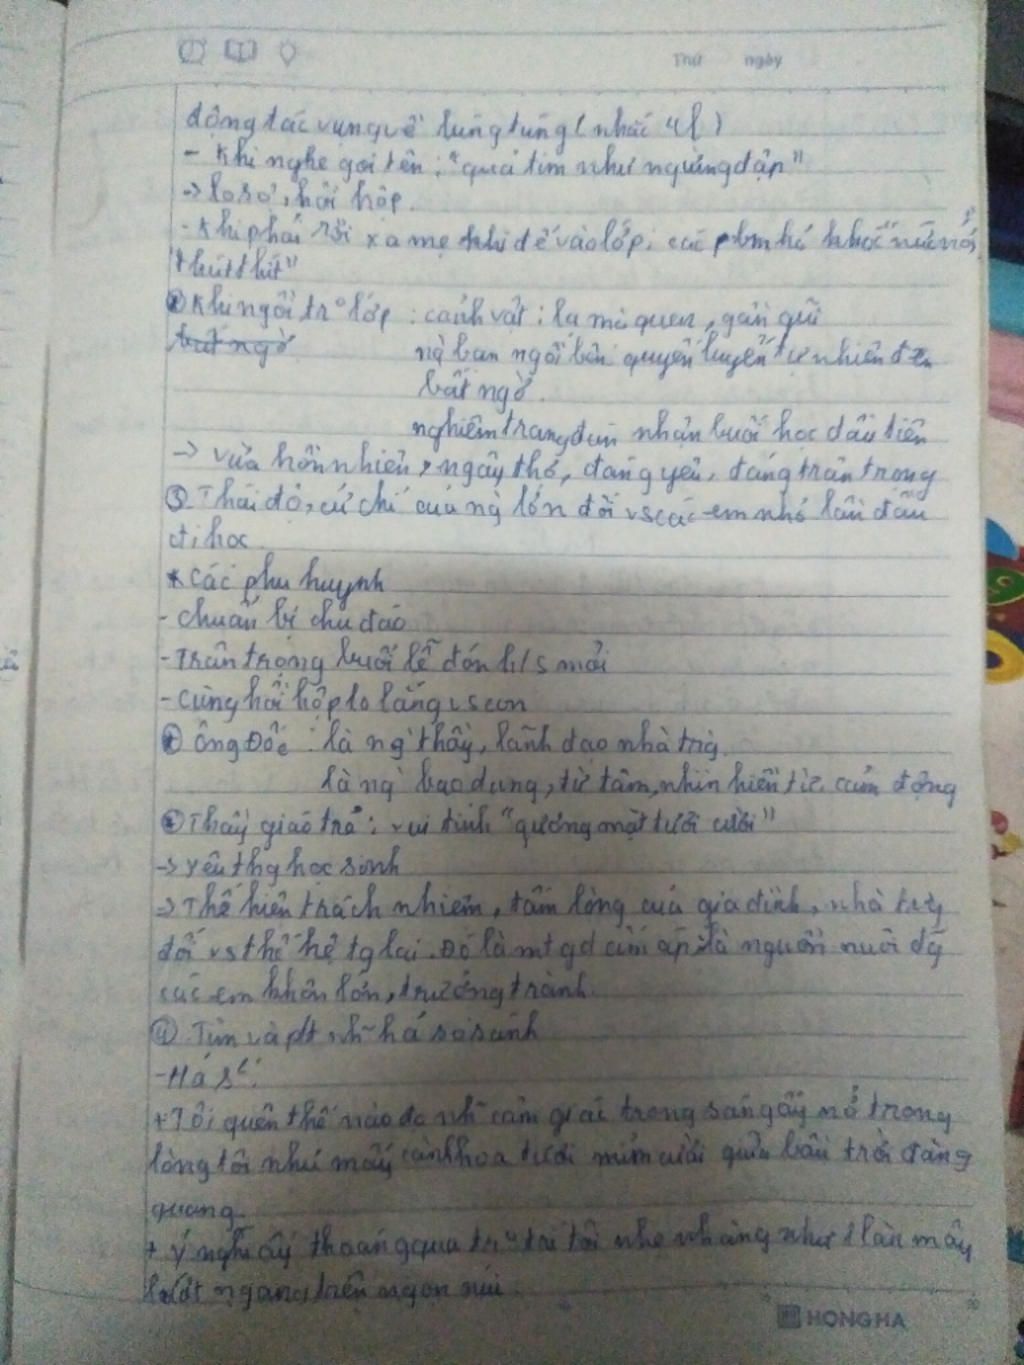 Thứ ngày
động tác vụng về lúng túng (nhấc
- Khi nghe gọi tên: "quả tim như ngừng đập"
-> lo sợ, hồi hộp.
- Khi phải rời xa mẹ khi để vào lớp: các nhỏ khóc nức nở,
"thút thít"
Khi ngồi tr lớp: cảnh vật: lạ mà quen, gần gũi
bất ngờ ng bạn ngồi bên quyến luyến tự nhiên đến
bất ngờ.
nghiêm trang đón nhận buổi học đầu tiên
-> vừa hồn nhiên, ngây thơ, đáng yêu, đáng trân trọng
③ Thái độ, cử chỉ của ng lớn đối vs các em nhỏ lần đầu
đi học
* Các phụ huynh
- chuẩn bị chu đáo
- Trân trọng buổi lễ đón h/s mới
- cùng hồi hộp lo lắng vs con
* Ông Đốc: là ng' thầy, lãnh đạo nhà trg.
là ng' bao dung, từ tâm, nhìn hiền từ, cảm động
* Thầy giáo trẻ: vui tính "gương mặt tươi cười"
-> yêu thg học sinh
=> Thể hiện trách nhiệm, tấm lòng của gia đình, nhà trg
đối vs thế hệ tg lai. Đó là mt gd ấm áp, là nguồn nuôi dg
các em khôn lớn, trưởng thành.
④ Tìm và pt nh~ h/á so sánh
- H/á s²:
+ Tôi quên thế nào đc nh~ cảm giác trong sáng ấy nở trong
lòng tôi như mấy cành hoa tươi mỉm cười giữa bầu trời đàng
quang.
+ Ý nghĩ ấy thoáng qua tr trí tôi nhẹ nhàng như 1 làn mây
lướt ngang trên ngọn núi.
HONG HA